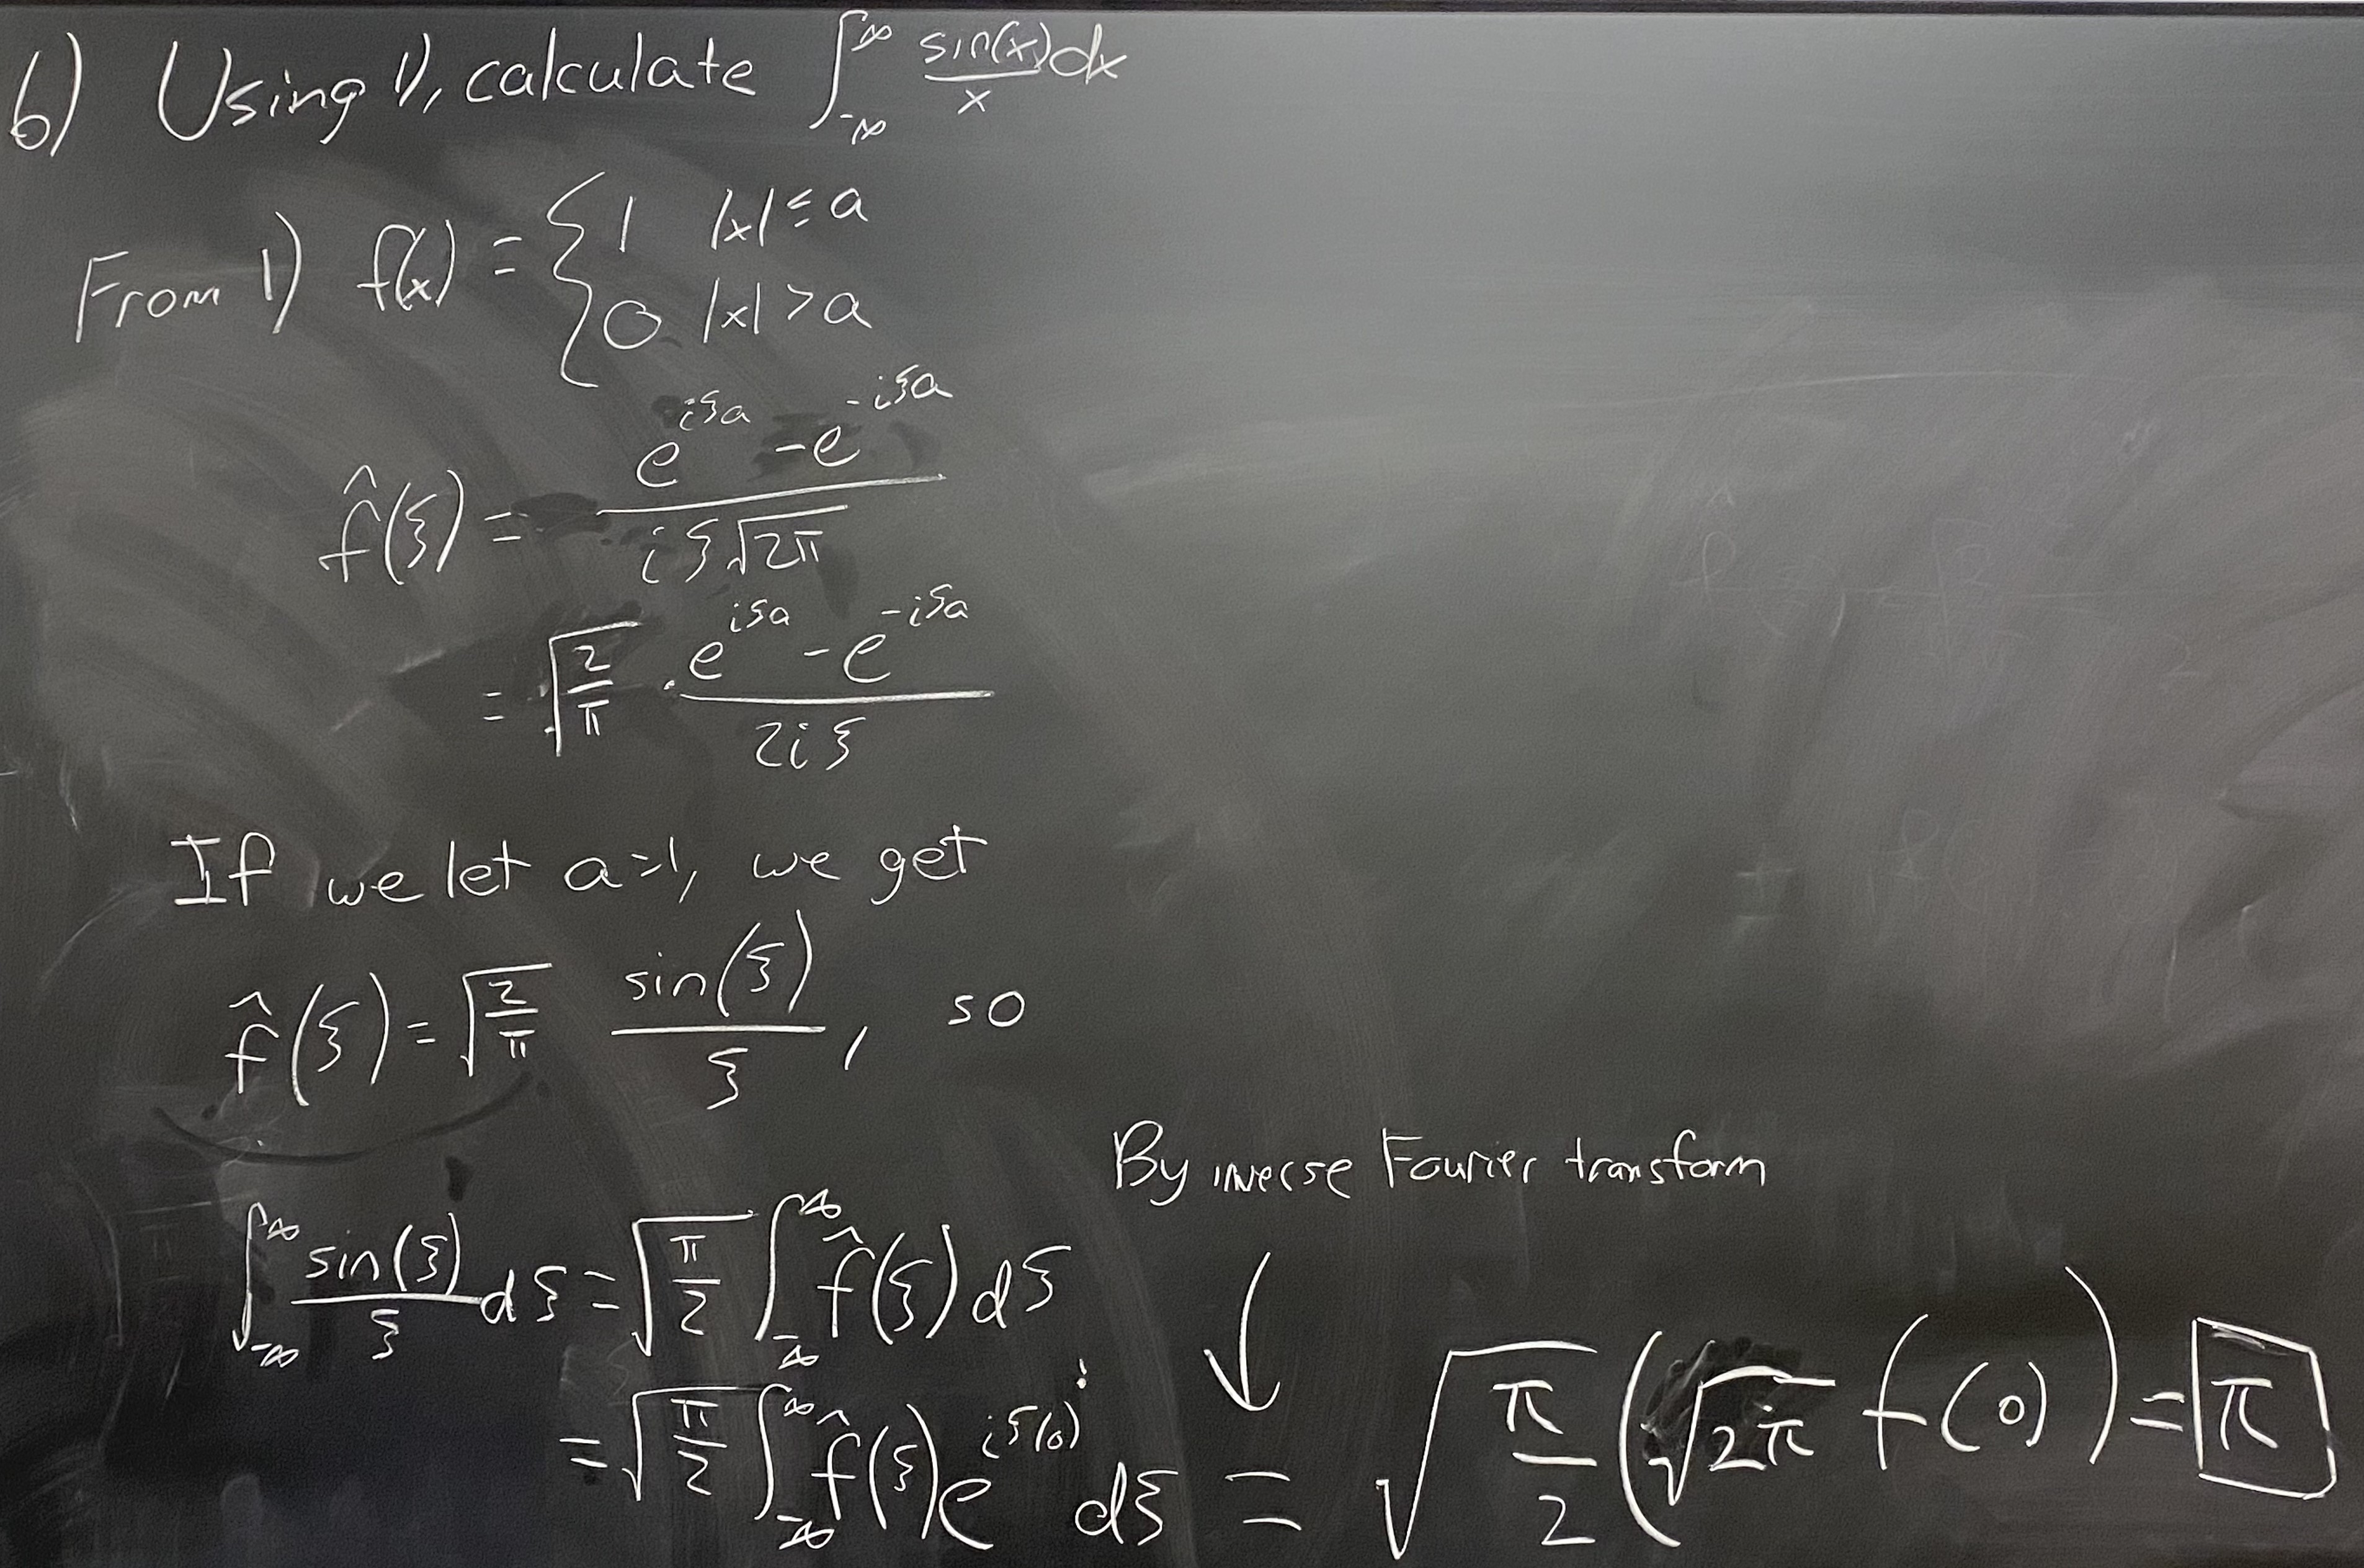 6) Using 1), calculate ∫_{-∞}^{∞} sin(x)/x dx
From 1) f(x) = { 1 |x| ≤ a
0 |x| > a
f̂(ξ) = (e^{iξa} - e^{-iξa}) / (iξ√(2π))
= √(2/π) · (e^{iξa} - e^{-iξa}) / (2iξ)
If we let a=1, we get
f̂(ξ) = √(2/π) sin(ξ)/ξ, so
By inverse Fourier transform
∫_{-∞}^{∞} sin(ξ)/ξ dξ = √(π/2) ∫_{-∞}^{∞} f̂(ξ) dξ
= √(π/2) ∫_{-∞}^{∞} f̂(ξ) e^{iξ(0)} dξ = √(π/2) (√(2π) f(0)) = π